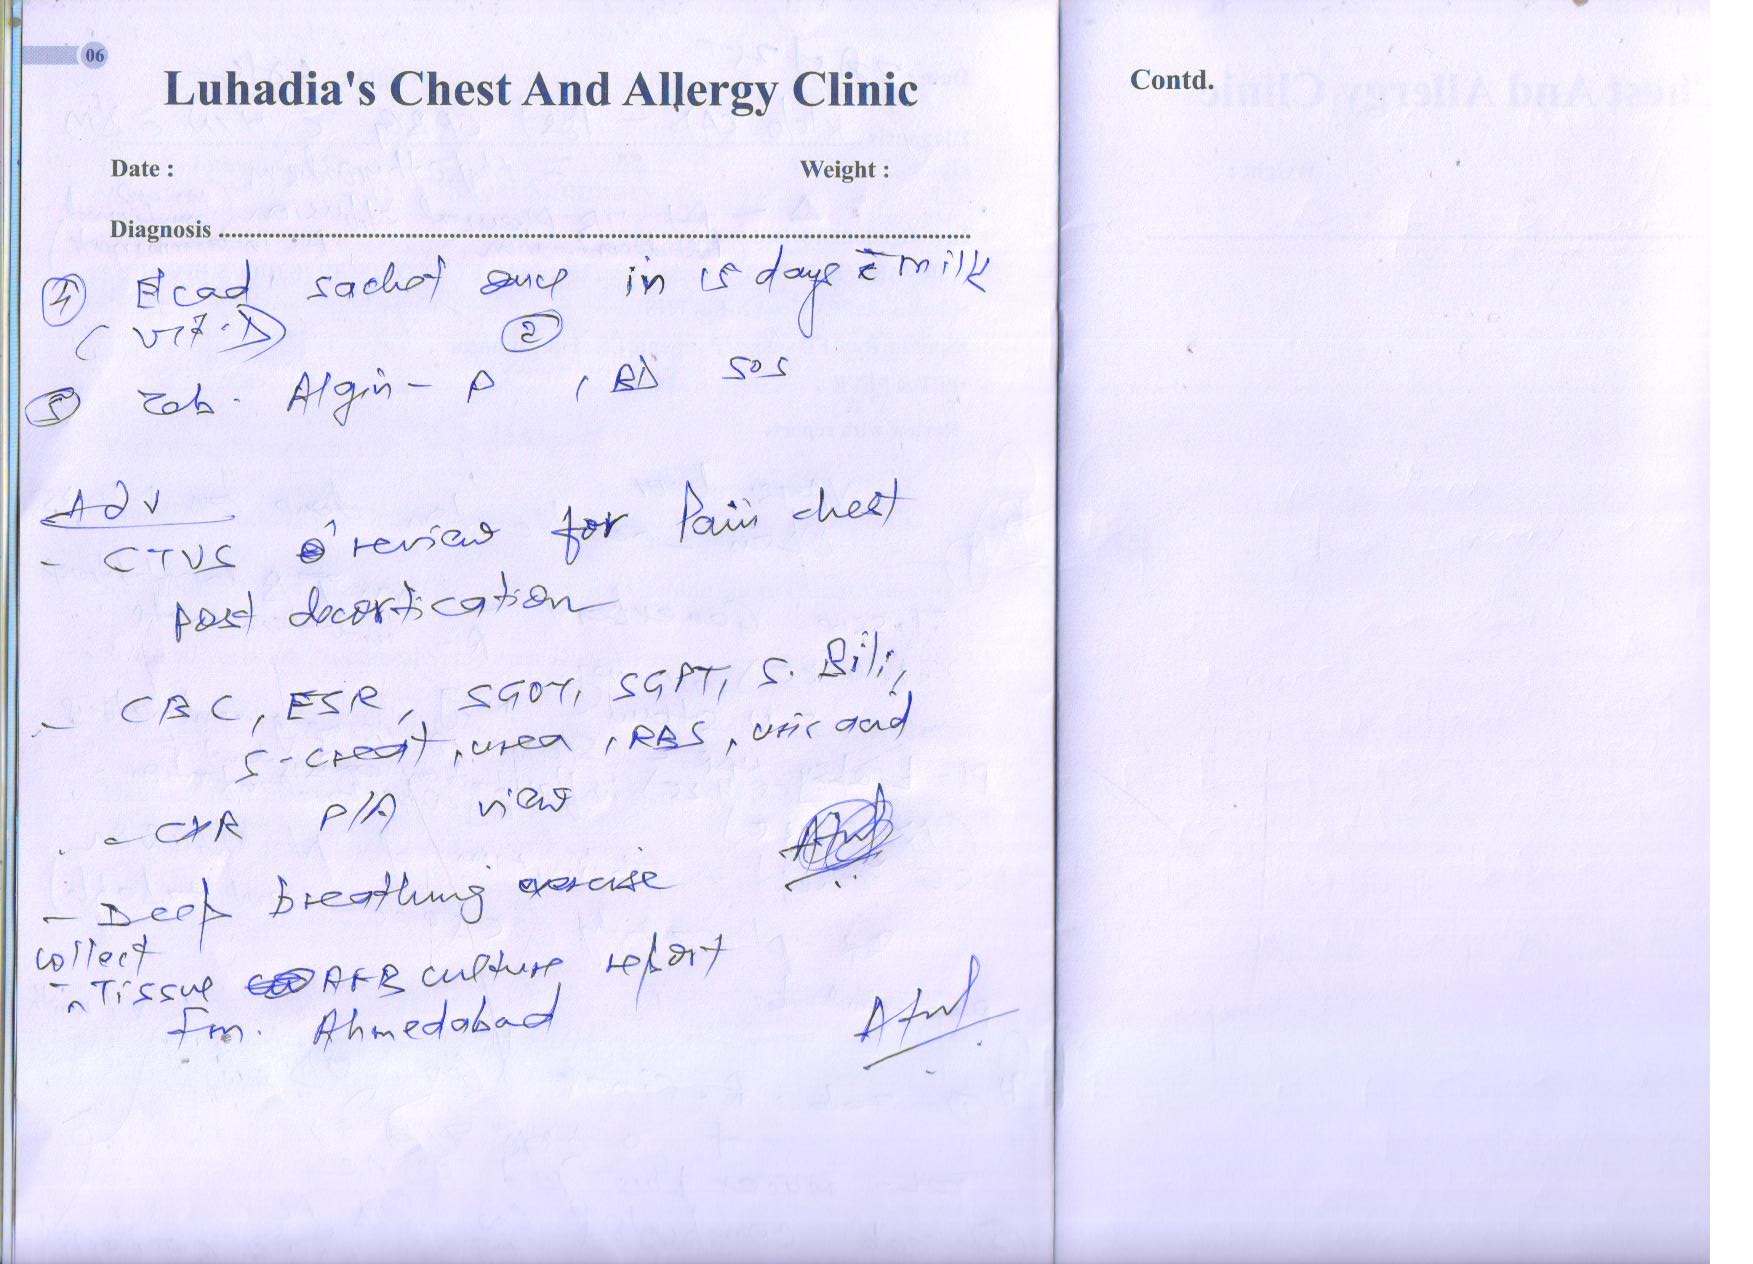 06
Luhadia's Chest And Allergy Clinic
Date :
Weight :
Diagnosis
④ Ecad sachet once in 15 days c̄ milk
(Vit. D)
②
⑤ Tab. Algin - P , BD SOS
Adv
- CTVS review for Pain chest
post decortication
- CBC, ESR, SGOT, SGPT, S. Bili,
S-creat, urea, RBS, uric acid
- CXR P/A view
- Deep breathing exercise
collect
- Tissue AFB culture report
Fm. Ahmedabad
Contd.